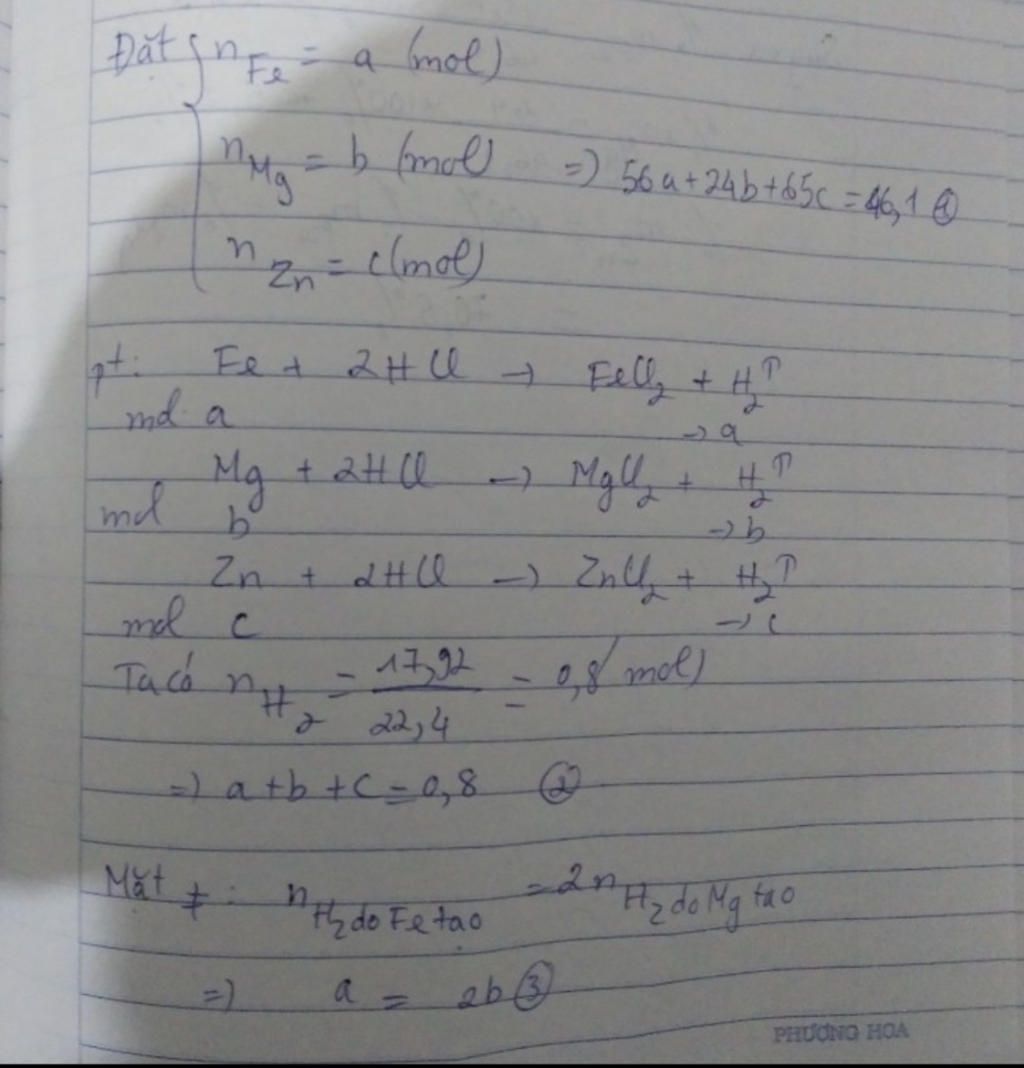 Đặt { n Fe = a (mol)
n Mg = b (mol) => 56a+24b+65c = 46,1 ①
n Zn = c (mol)
pt: Fe + 2HCl → FeCl₂ + H₂↑
mol a → a
Mg + 2HCl → MgCl₂ + H₂↑
mol b → b
Zn + 2HCl → ZnCl₂ + H₂↑
mol c → c
Ta có n H₂ = 17,92 / 22,4 = 0,8 (mol)
=> a + b + c = 0,8 ②
Mặt ≠ : n H₂ do Fe tạo = 2n H₂ do Mg tạo
=> a = 2b ③
PHƯƠNG HOA